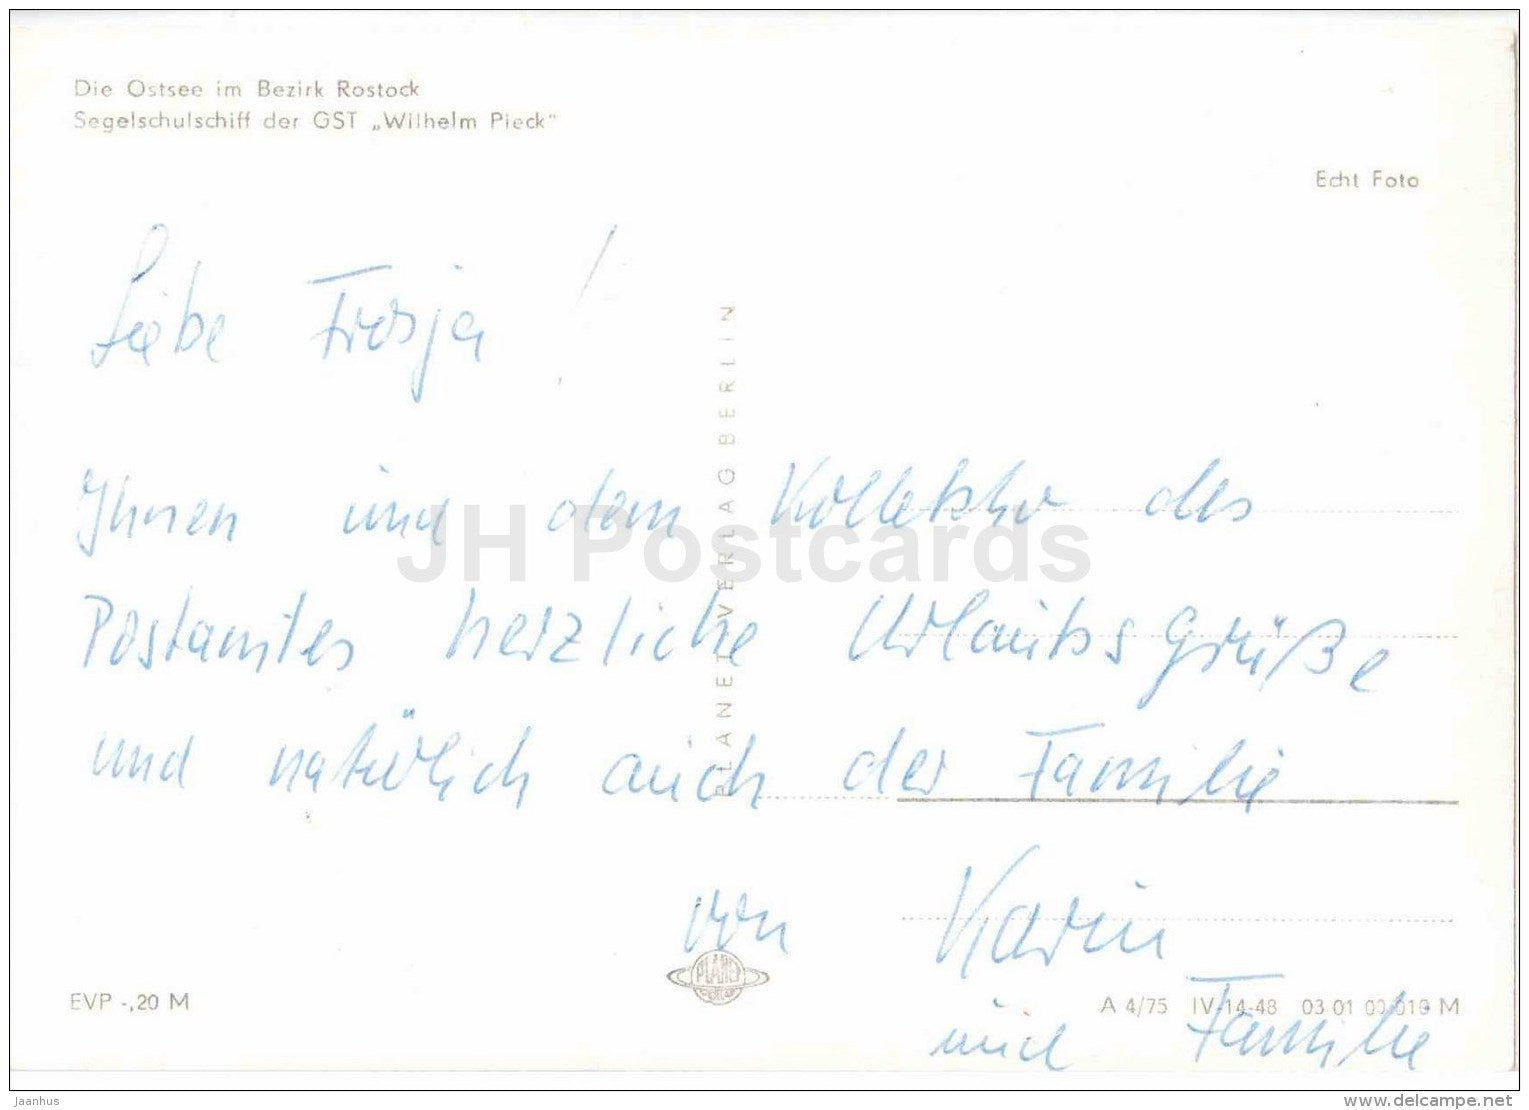 Die Ostsee im Bezirk Rostock
Segelschulschiff der GST „Wilhelm Pieck"
Echt Foto
Liebe Frosja!
Ihnen und dem Kollektiv des
Postamtes herzliche Urlaubsgrüße
und natürlich auch der Familie
von Karin
und Familie
PLANET-VERLAG BERLIN
PLANET
EVP -,20 M
A 4/75 IV-14-48 03 01 00 019 M
JH Postcards
Jaanhus
www.delcampe.net